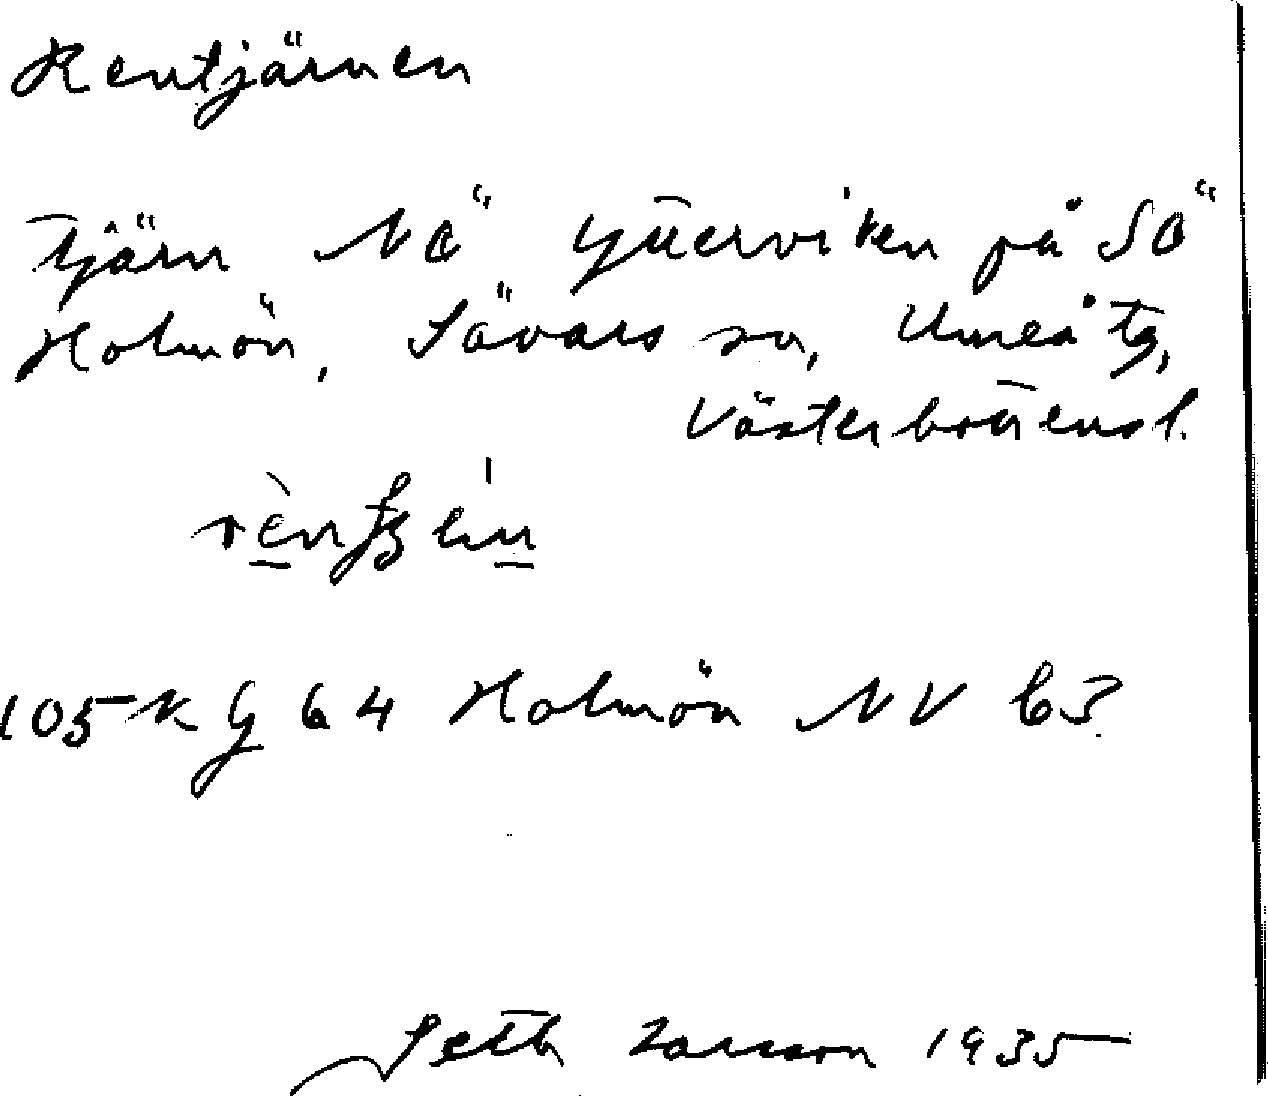 Rentjärnen
Tjärn NÖ Ytterviken på SÖ
Holmön, Sävars sn, Umeå tg,
Västerbottensl.
105 K G 64 Holmön NV b3
Seth Larsson 1935